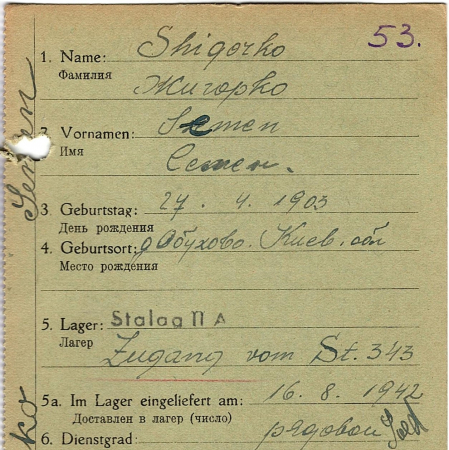 53.
1. Name: Shigorko
Фамилия Жигорко
2 Vornamen: Semen
Имя Семен.
3 Geburtstag: 27. 4. 1903
День рождения
4. Geburtsort: д Обухово. Киев. обл
Место рождения
5. Lager: Stalag II A
Лагер
Zugang vom St. 343
5a. Im Lager eingeliefert am: 16. 8. 1942
Доставлен в лагер (число)
6. Dienstgrad: рядовой Sold
Semen
ko